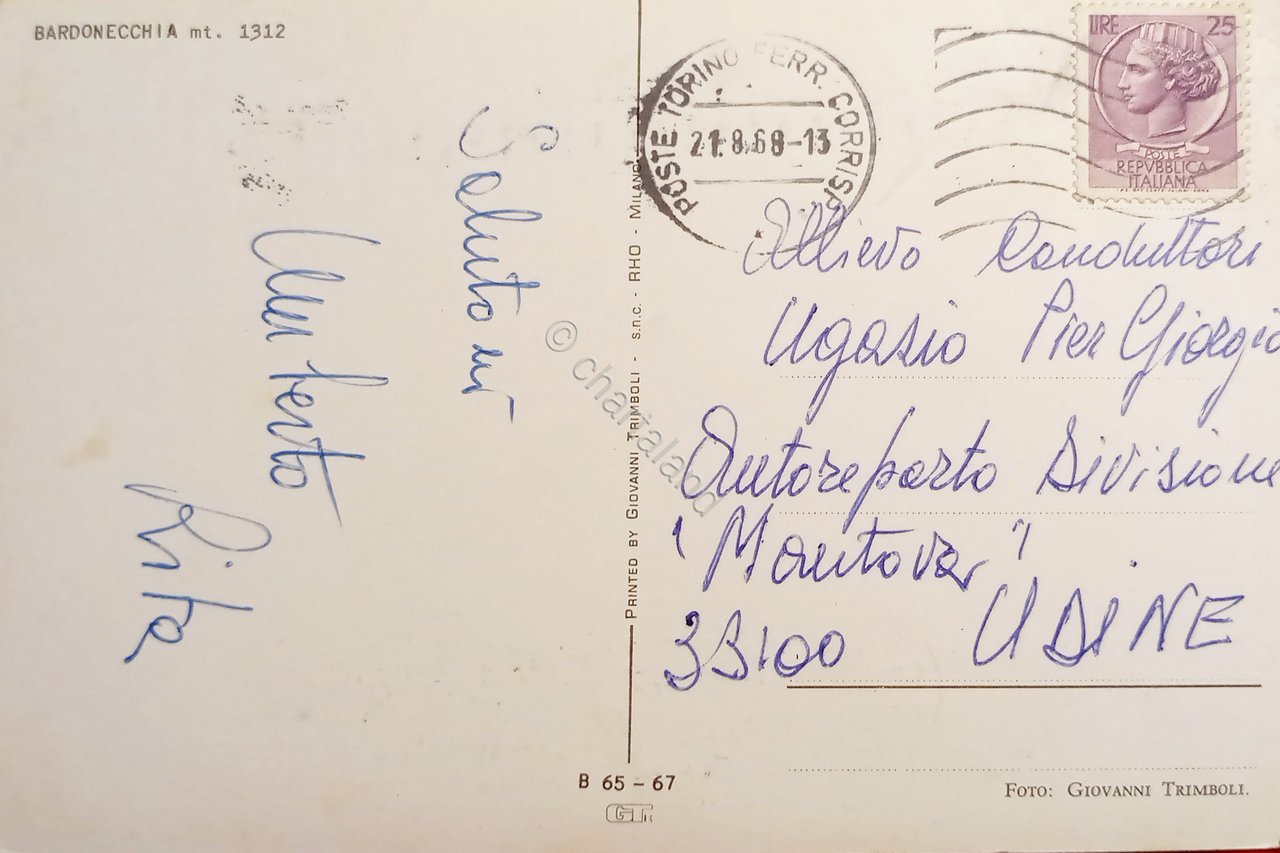 BARDONECCHIA mt. 1312
Salutoni
Umberto
Rita
PRINTED BY GIOVANNI TRIMBOLI - s.n.c. - RHO - MILANO
B 65 - 67
GTR
POSTE TORINO FERR. CORRISP
21.8.68-13
LIRE 25
POSTE
REPVBBLICA
ITALIANA
Allievo Conduttori
Ugasio Pier Giorgio
Autoreparto Divisione
"Mantova"
33100 UDINE
FOTO: GIOVANNI TRIMBOLI.
© chartaland